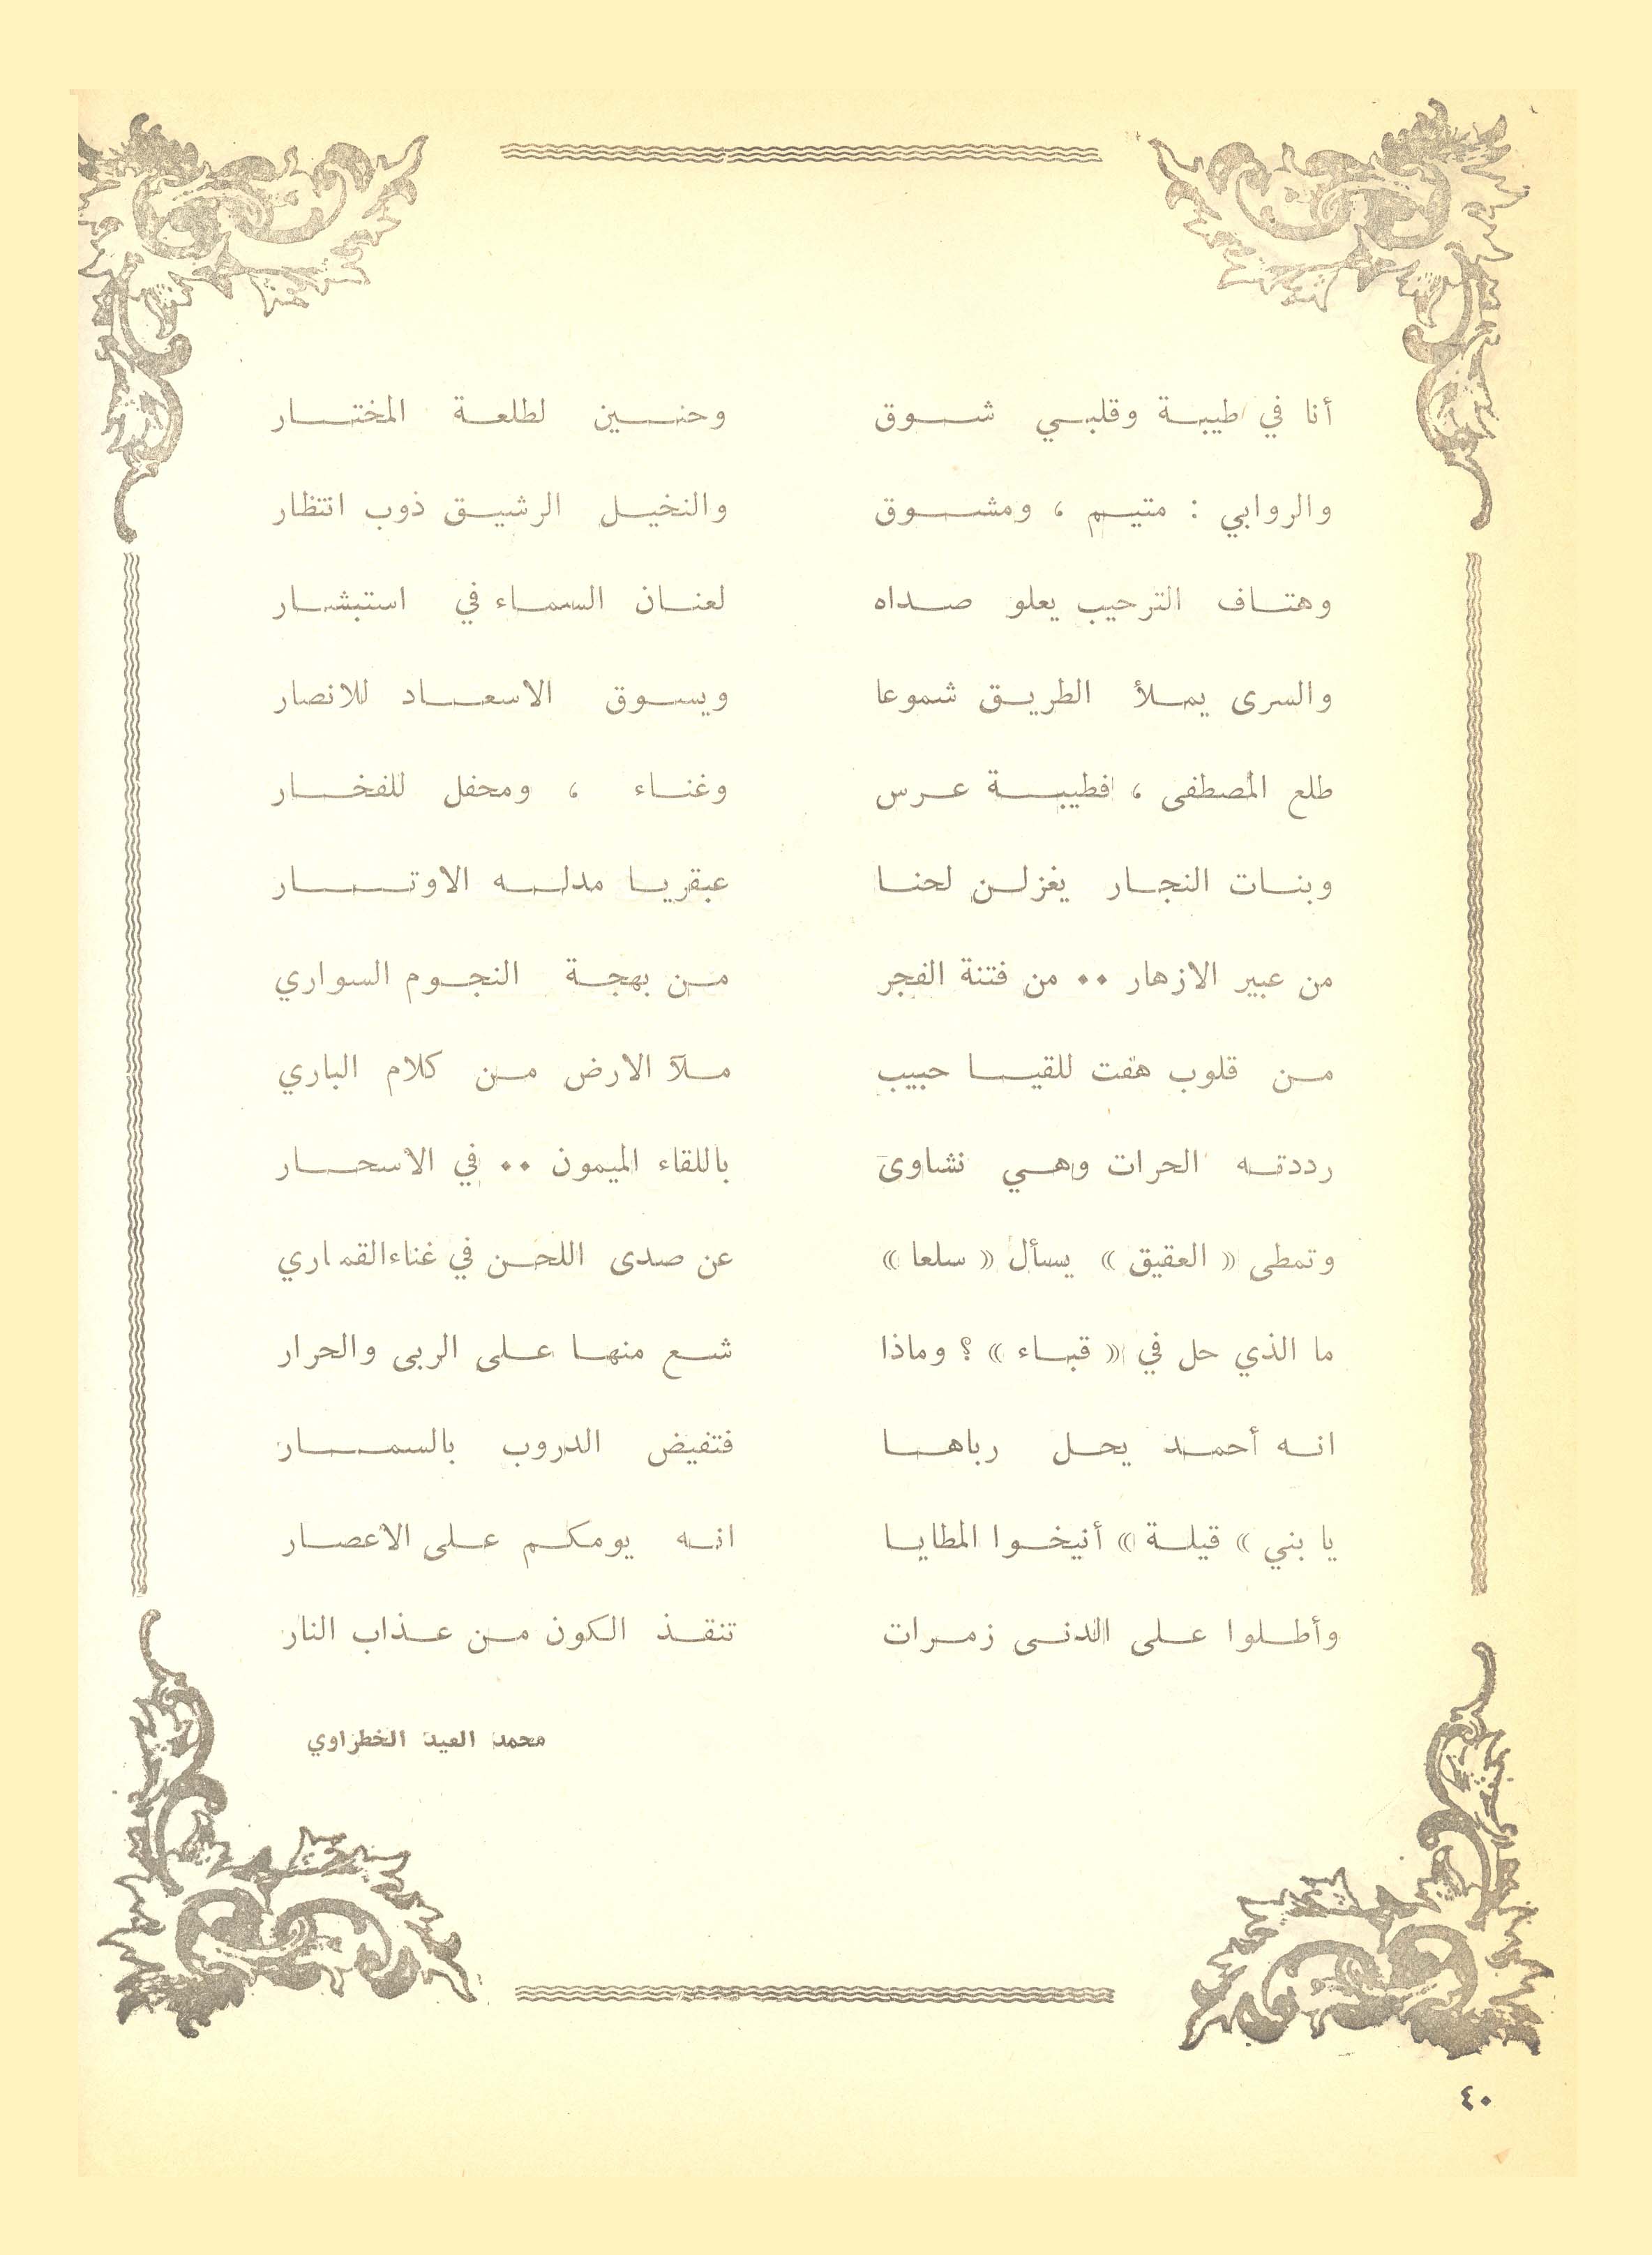 أنا في طيبة وقلبي شوق وحنين لطلعة المختار
والروابي : متيم ، ومشوق والنخيل الرشيق ذوب انتظار
وهتاف الترحيب يعلو صداه لعنان السماء في استبشار
والسرى يملأ الطريق شموعا ويسوق الاسعاد للانصار
طلع المصطفى ، فطيبة عرس وغناء ، ومحفل للفخار
وبنات النجار يغزلن لحنا عبقريا مدله الاوتار
من عبير الازهار .. من فتنة الفجر من بهجة النجوم السواري
من قلوب هفت للقيا حبيب ملآ الارض من كلام الباري
رددته الحرات وهي نشاوى باللقاء الميمون .. في الاسحار
وتمطى « العقيق » يسأل « سلعا » عن صدى اللحن في غناء القماري
ما الذي حل في « قباء » ؟ وماذا شع منها على الربى والحرار
انه أحمد يحل رباها فتفيض الدروب بالسمار
يا بني « قيلة » أنيخوا المطايا انه يومكم على الاعصار
وأطلوا على الدنى زمرات تنقذ الكون من عذاب النار
محمد العيد الخطراوي
٤٠